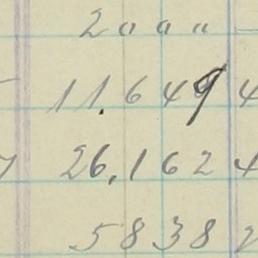 2 0 0 0 -
11.649 4
26,162 4
5838 2